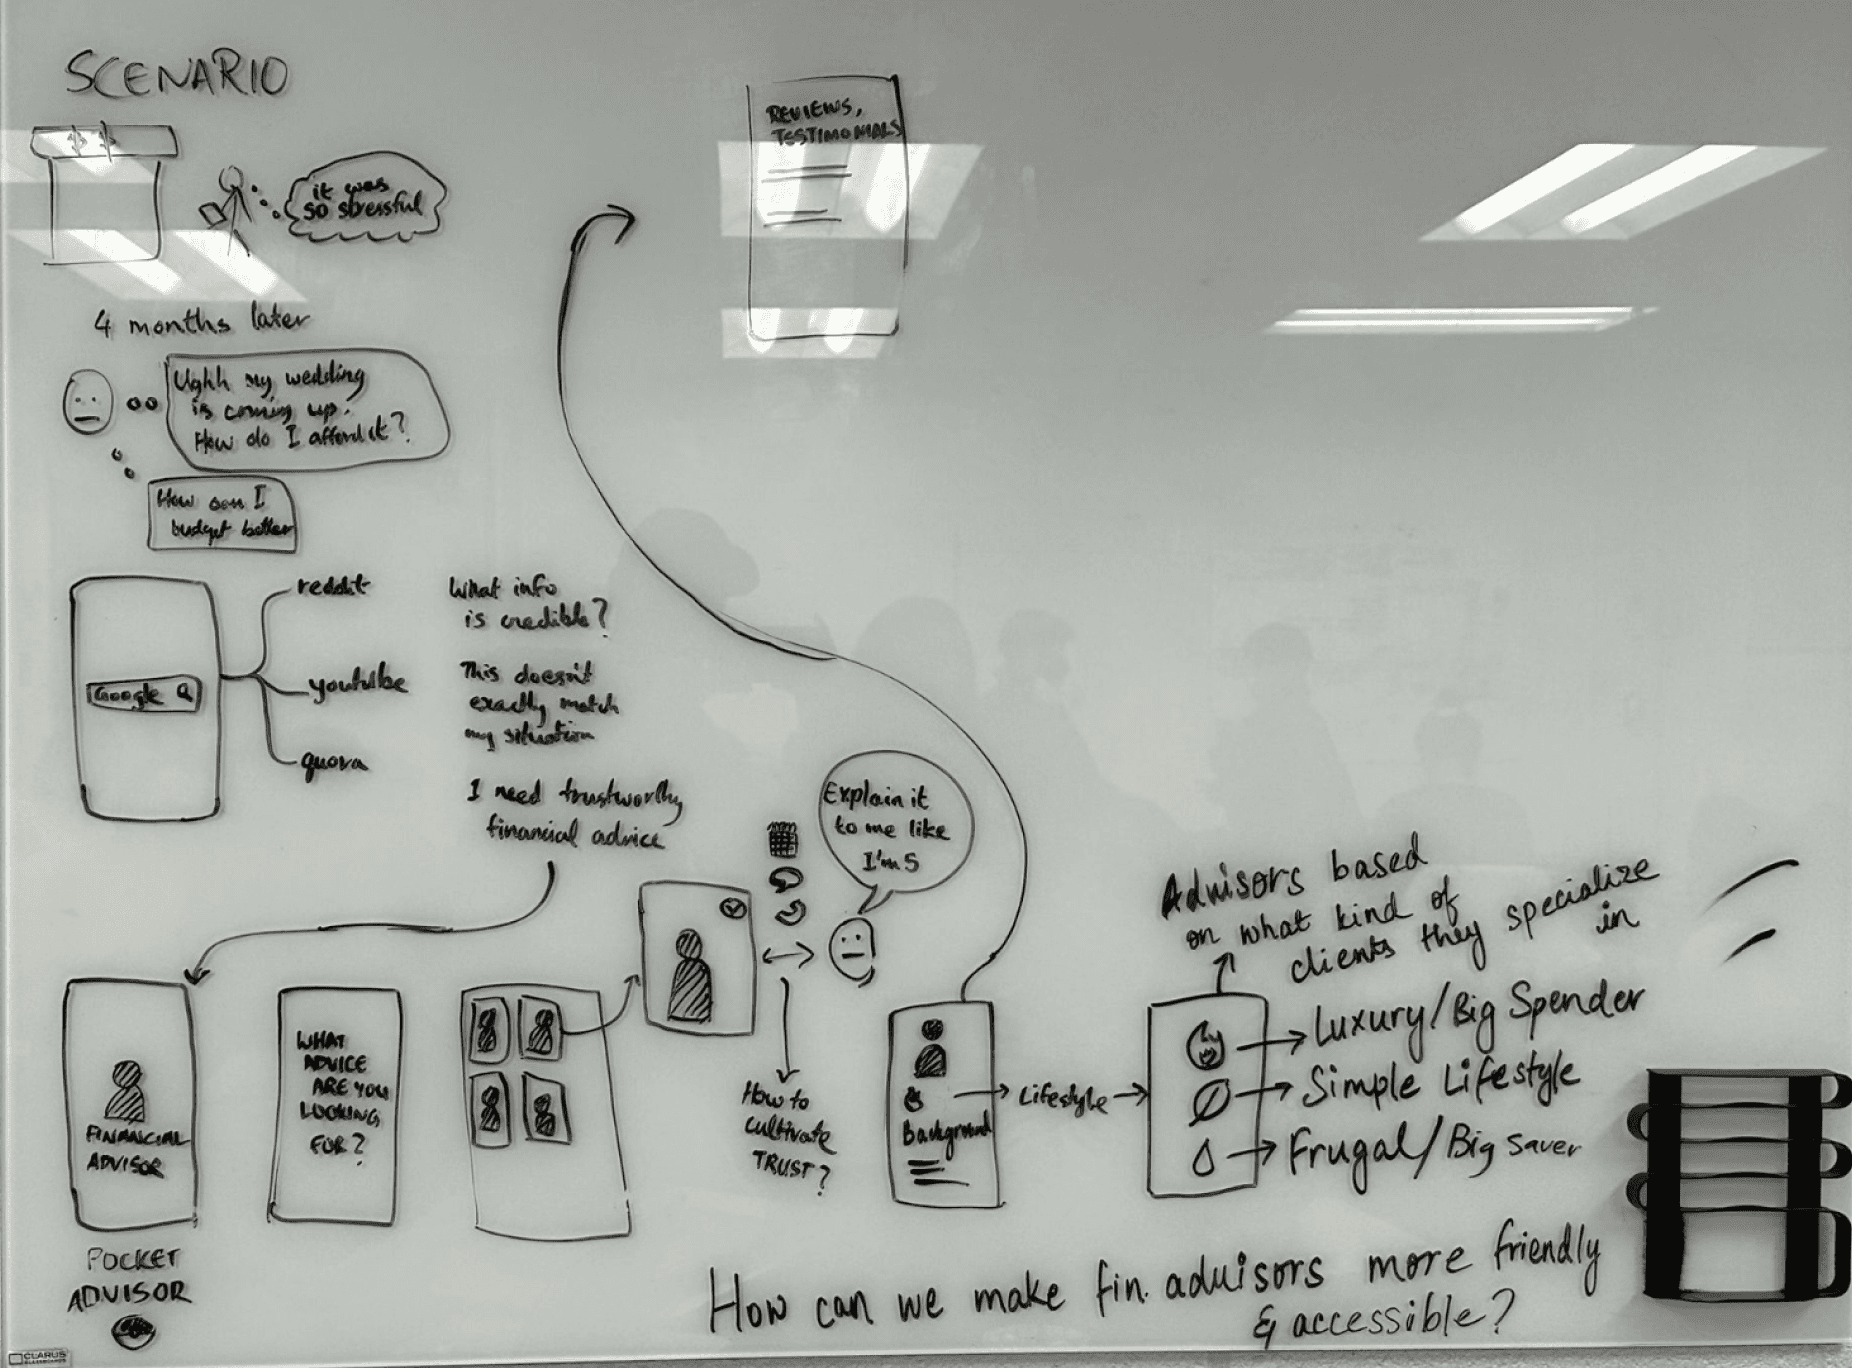 SCENARIO
$ $
it was
so stressful
4 months later
Ughh my wedding
is coming up.
How do I afford it?
How can I
budget better
Google
reddit
youtube
quora
What info
is credible?
This doesn't
exactly match
my situation
I need trustworthy
financial advice
FINANCIAL
ADVISOR
POCKET
ADVISOR
WHAT
ADVICE
ARE YOU
LOOKING
FOR?
Explain it
to me like
I'm 5
How to
cultivate
TRUST?
REVIEWS,
TESTIMONIALS
Background
Lifestyle
Advisors based
on what kind of
clients they specialize
in
Luxury/Big Spender
Simple Lifestyle
Frugal/Big saver
How can we make fin. advisors more friendly
& accessible?
CLARUS